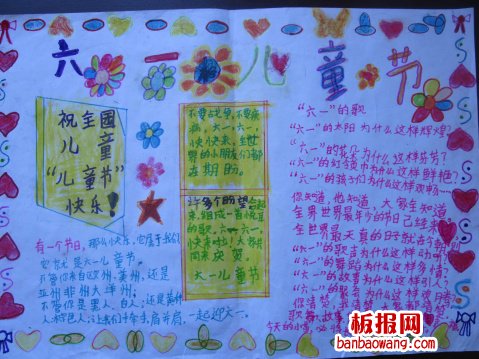 六一儿童节
祝全国
儿童
"儿童节"
快乐!
不要战争,不要疾
病,六一,六一
快快来,全世
界的小朋友们都
在期盼。
许多个盼望
来,组成一首快豆
的歌,六一,六一
六一儿童节
有一个节日,那么快乐,它属于我们
它就是六一儿童节。
不管你来自欧洲,美洲,还是
亚洲非洲大洋洲;
不管你是黑人,白人,还是黄种
人,棕色人,让我们手牵手,肩并肩,一起迎六一。
"六一"的歌
"六一"的太阳为什么这样辉煌?
"六一"的花朵为什么这样芬芳?
"六一"的红领巾为什么这样鲜艳?
"六一"的孩子们为什么这样欢畅
你知道,他知道,大家全知道
全世界最年少的节日已经来
全世界最天真的日子就在今朝
"六一"的歌声为什么这样动听?
"六一"的舞蹈为什么这样多情?
"六一"的故事为什么这样引人?
板报网
banbaowang.com